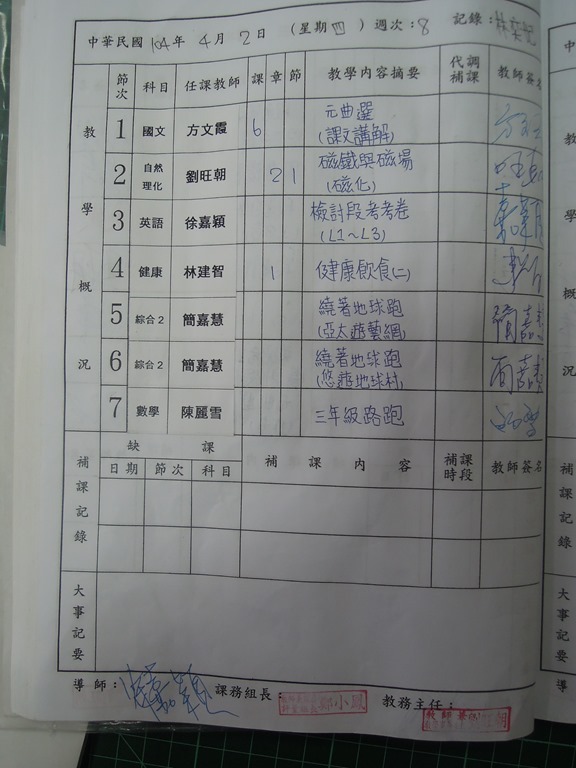 中華民國 104 年 4 月 2 日 (星期四) 週次:8 記錄:
節次 科目 任課教師 課 章 節 教學內容摘要 代調補課 教師簽名
教學概況
1 國文 方文霞 6 元曲選
(課文講解)
2 自然理化 劉旺朝 2 1 磁鐵與磁場
(磁化)
3 英語 徐嘉穎 檢討段考考卷
(L1~L3)
4 健康 林建智 1 健康飲食(二)
5 綜合2 簡嘉慧 繞著地球跑
(亞太遊藝網)
6 綜合2 簡嘉慧 繞著地球跑
(悠遊地球村)
7 數學 陳麗雪 三年級路跑
補課記錄
缺課 補課內容 補課時段 教師簽名
日期 節次 科目
大事記要
導師: 課務組長: 鄭小鳳 教務主任: